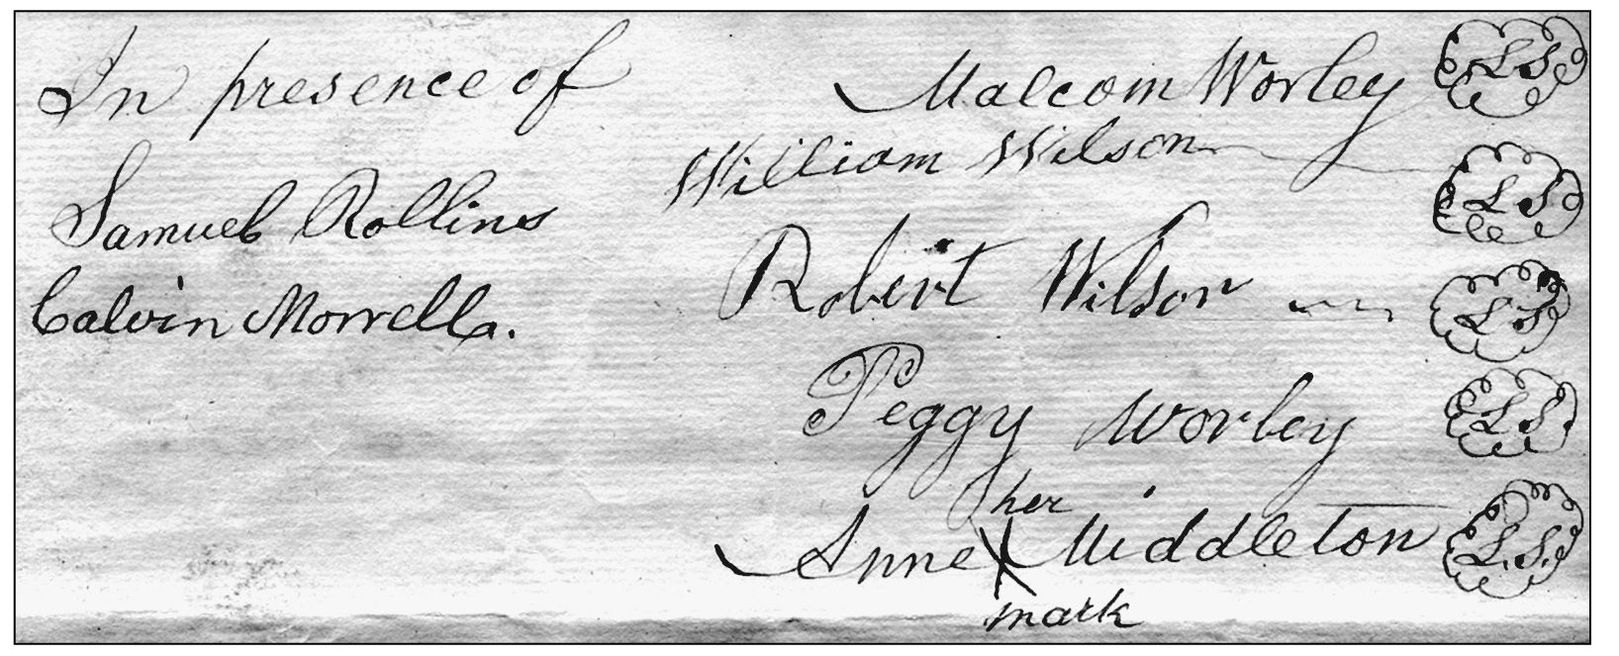 In presence of
Samuel Rollins
Calvin Morrell.
Malcom Worley L S
William Wilson L S
Robert Wilson L S
Peggy Worley L S.
her
Anne X Middleton L.S.
mark